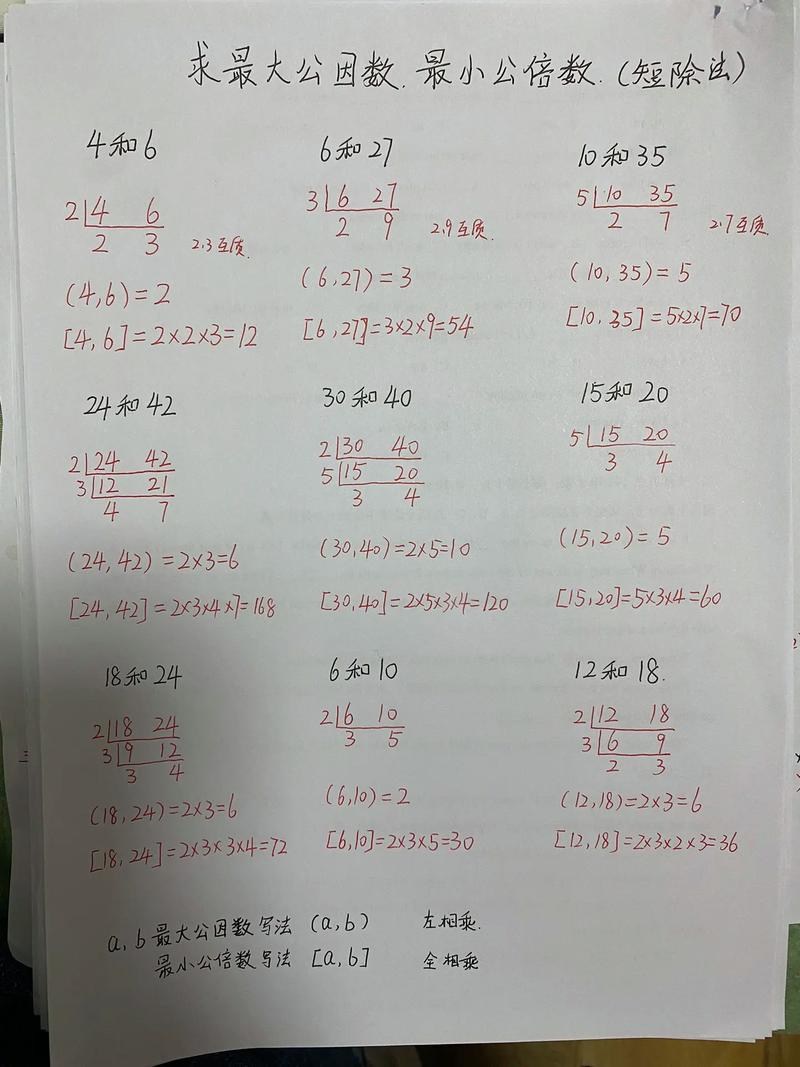 求最大公因数.最小公倍数.(短除法)
4和6
2 4 6
2 3 2.3互质.
(4,6)=2
[4,6]=2×2×3=12
6和27
3 6 27
2 9 2.9互质.
(6,27)=3
[6,27]=3×2×9=54
10和35
5 10 35
2 7 2.7互质.
(10,35)=5
[10,35]=5×2×7=70
24和42
2 24 42
3 12 21
4 7
(24,42)=2×3=6
[24,42]=2×3×4×7=168
30和40
2 30 40
5 15 20
3 4
(30,40)=2×5=10
[30,40]=2×5×3×4=120
15和20
5 15 20
3 4
(15,20)=5
[15,20]=5×3×4=60
18和24
2 18 24
3 9 12
3 4
(18,24)=2×3=6
[18,24]=2×3×3×4=72
6和10
2 6 10
3 5
(6,10)=2
[6,10]=2×3×5=30
12和18.
2 12 18
3 6 9
2 3
(12,18)=2×3=6
[12,18]=2×3×2×3=36
a,b最大公因数写法 (a,b) 左相乘.
最小公倍数写法 [a,b] 全相乘